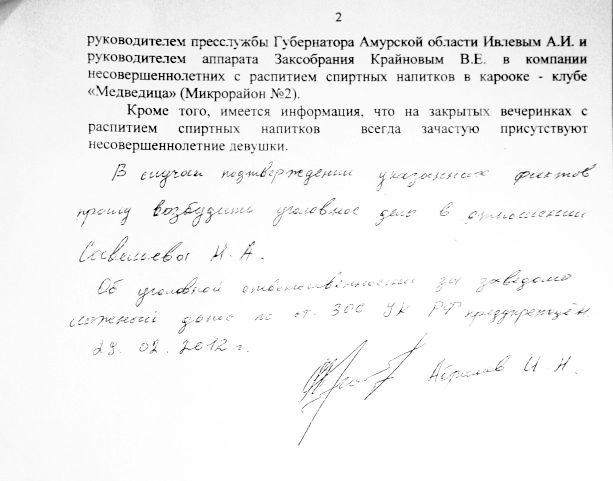 2
руководителем пресслужбы Губернатора Амурской области Ивлевым А.И. и
руководителем аппарата Заксобрания Крайновым В.Е. в компании
несовершеннолетних с распитием спиртных напитков в карооке - клубе
«Медведица» (Микрорайон №2).
Кроме того, имеется информация, что на закрытых вечеринках с
распитием спиртных напитков всегда зачастую присутствуют
несовершеннолетние девушки.
В случаи подтверждении указанных фактов
прошу возбудить уголовное дело в отношении
Савельевы Н.А.
Об уголовной ответственности за заведомо
ложный донос по ст. 306 УК РФ предупреждён.
29. 02. 2012 г.
И. Н.